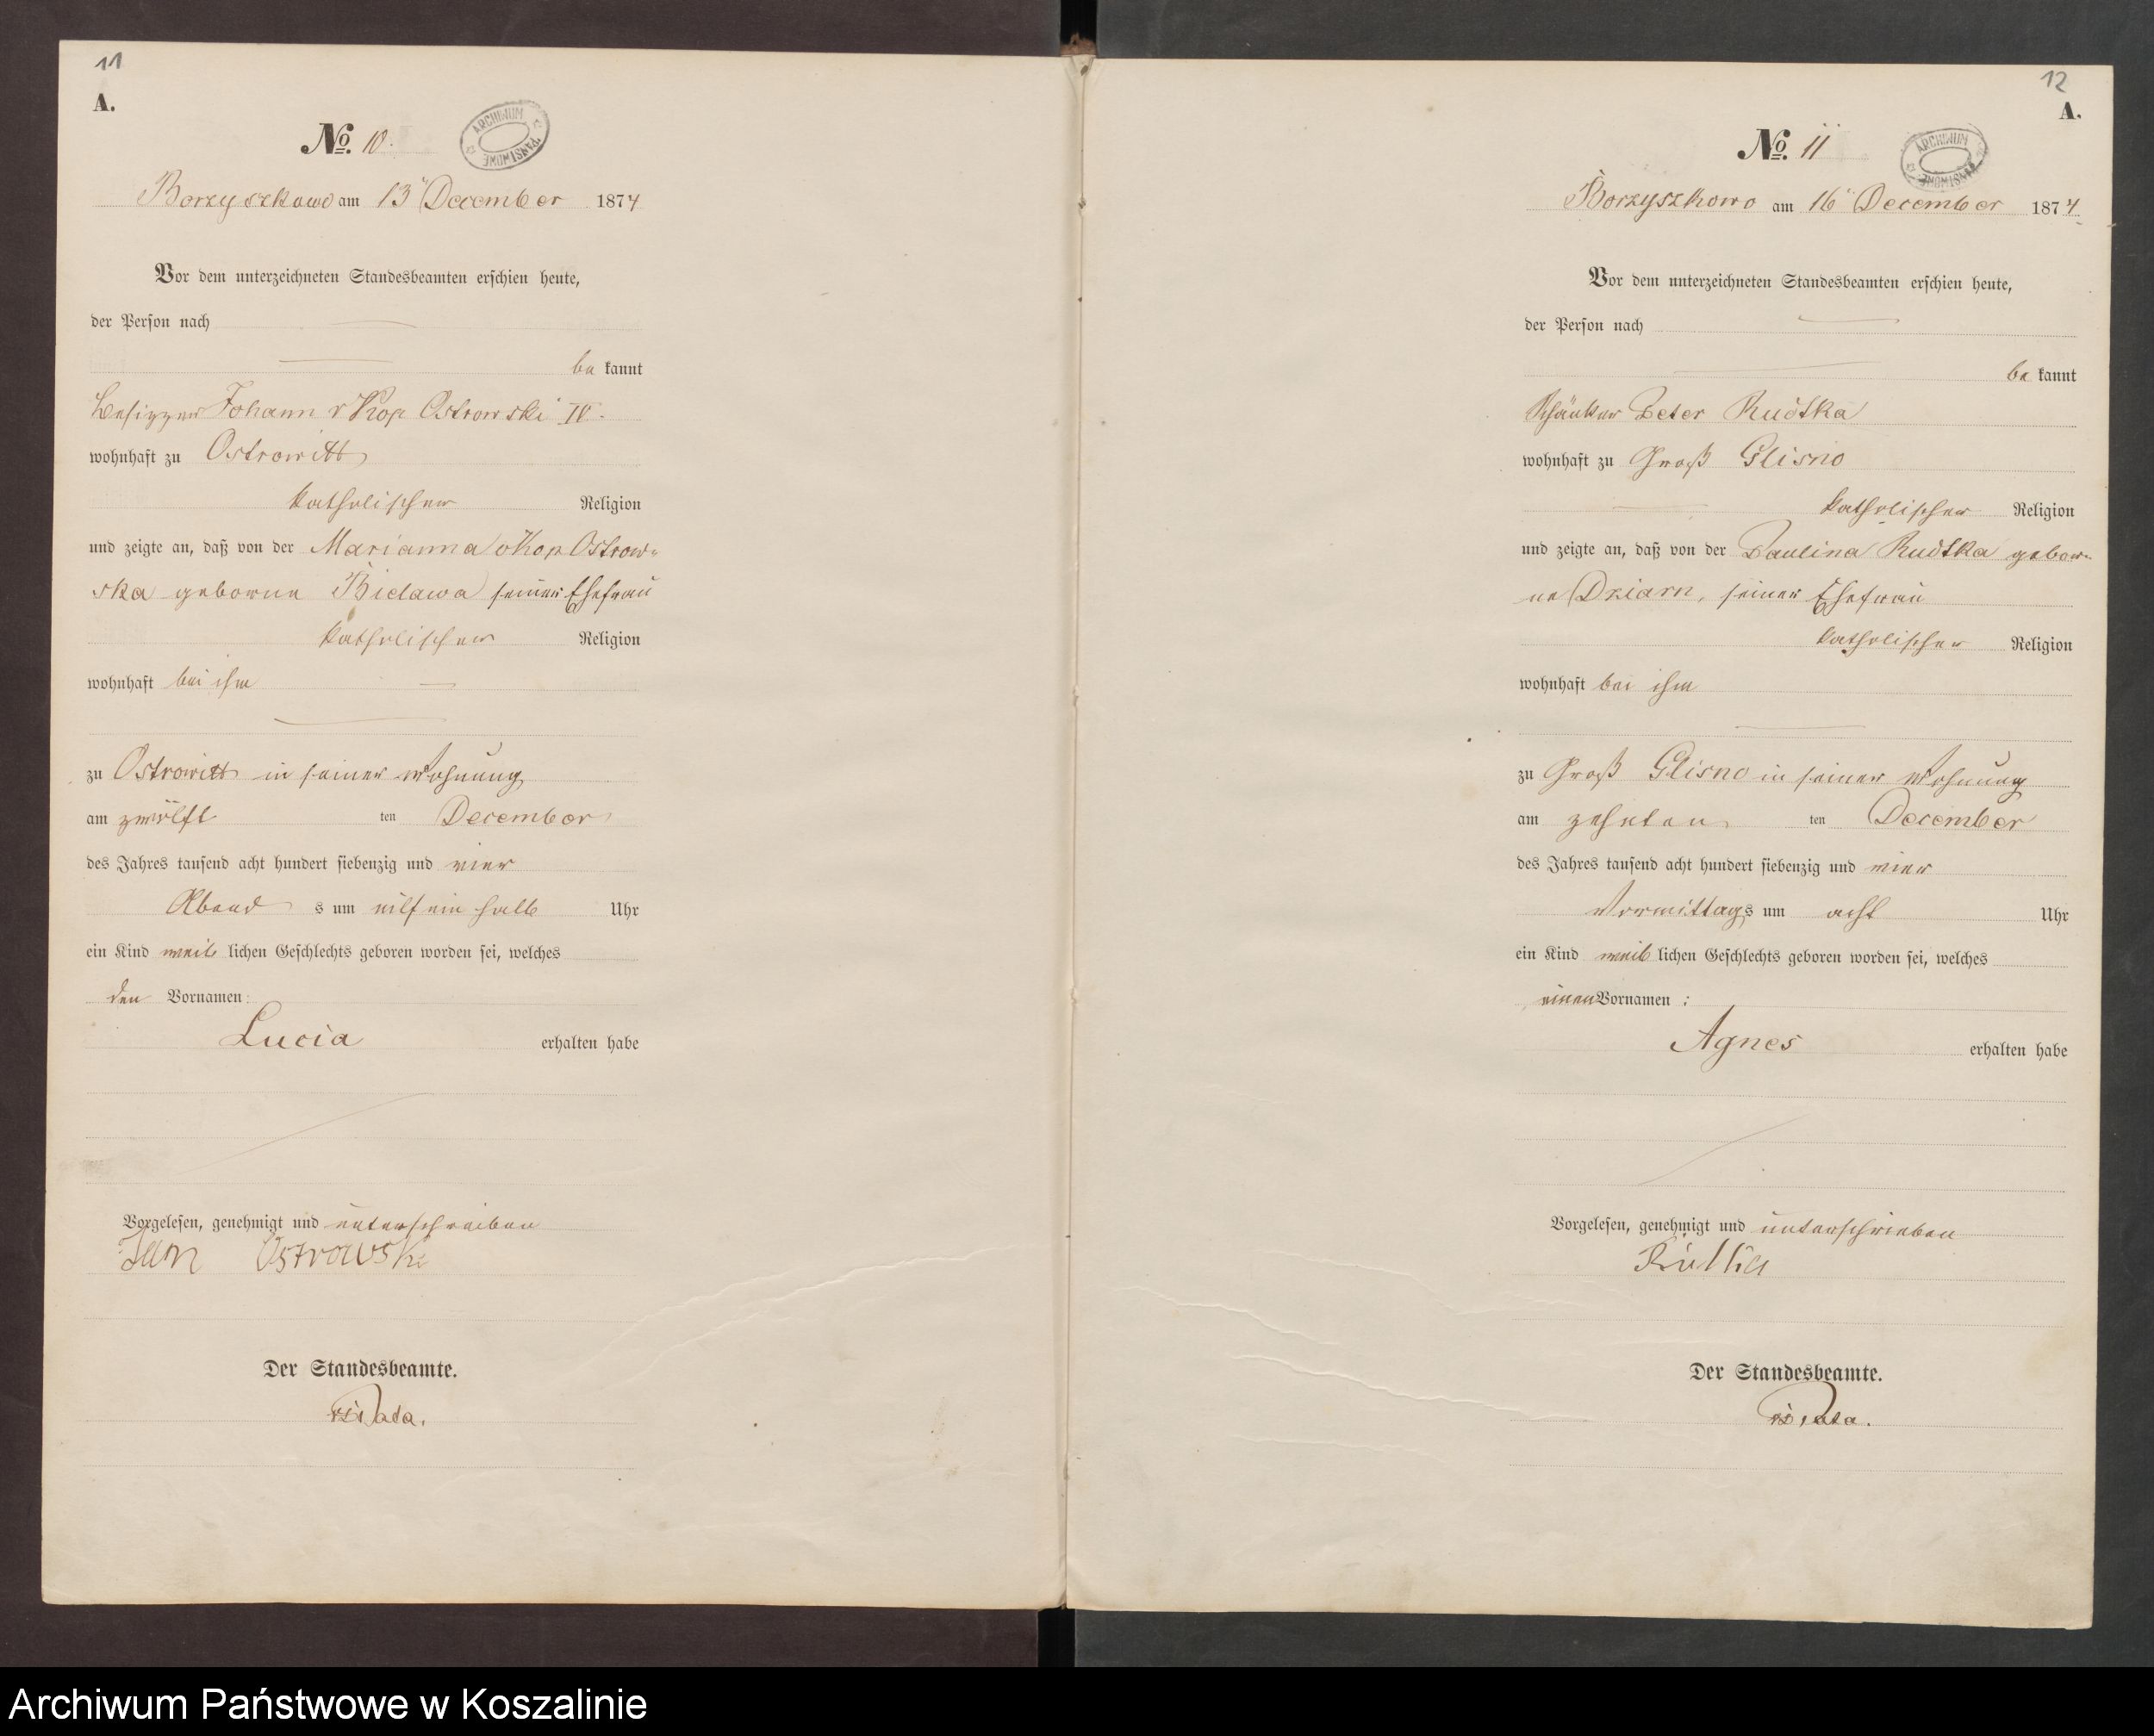 11
A.
No. 10.
ARCHIWUM PAŃSTWOWE
Borzyszkowo am 13 December 1874
Vor dem unterzeichneten Standesbeamten erschien heute,
der Person nach
be kannt
Besitzer Johann v Kop Ostrowski IV.
wohnhaft zu Ostrowitt
katholischer Religion
und zeigte an, daß von der Marianna v Kop Ostrow-
ska geborne Bielawa seiner Ehefrau
katholischer Religion
wohnhaft bei ihm
zu Ostrowitt in seiner Wohnung
am zwölft ten December
des Jahres tausend acht hundert siebenzig und vier
Abend s um eilf ein halb Uhr
ein Kind weib lichen Geschlechts geboren worden sei, welches
den Vornamen:
Lucia erhalten habe
Vorgelesen, genehmigt und unterschreiben
Jan Ostrowski
Der Standesbeamte.
12
A.
No. 11
ARCHIWUM PAŃSTWOWE
Borzyszkowo am 16 December 1874
Vor dem unterzeichneten Standesbeamten erschien heute,
der Person nach
be kannt
Schänker Peter Rudtka
wohnhaft zu Groß Glisno
katholischer Religion
und zeigte an, daß von der Paulina Rudtka gebor-
ne Dziarn, seiner Ehefrau
katholischer Religion
wohnhaft bei ihm
zu Groß Glisno in seiner Wohnung
am zehnten ten December
des Jahres tausend acht hundert siebenzig und vier
Vormittags um acht Uhr
ein Kind weib lichen Geschlechts geboren worden sei, welches
einen Vornamen :
Agnes erhalten habe
Vorgelesen, genehmigt und unterschrieben
Der Standesbeamte.
Archiwum Państwowe w Koszalinie